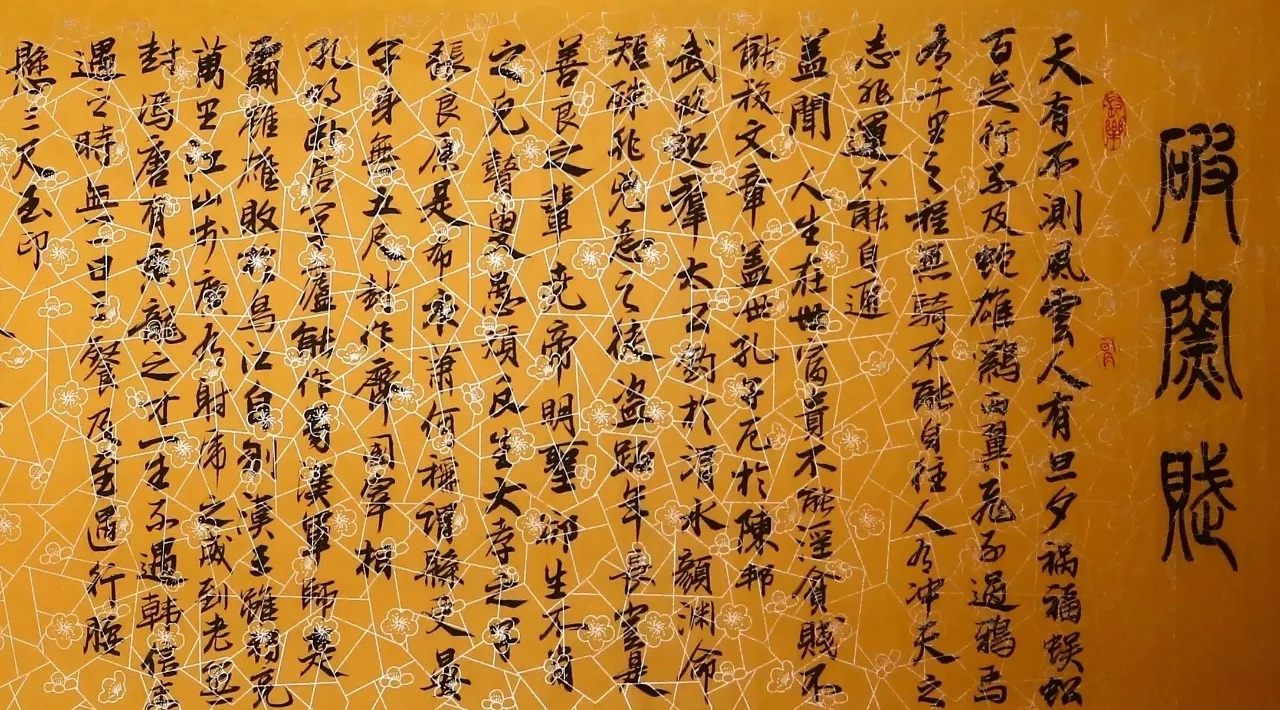 破窑赋
天有不測風雲人有旦夕祸福蜈蚣
百足行不及蛇雄鷄两翼飛不過鴉馬
有千里之程無騎不能自往人有冲天之
志非運不能自通
盖聞人生在世富貴不能淫貧賤不
能移文章盖世孔子厄於陳邦
武略超羣太公釣於渭水顏渊命
短殊非兇惡之徒盗跖年長豈是
善良之輩尭帝明聖却生不肖
之兒瞽叟愚頑反生大孝之子
張良原是布衣萧何稱谓縣吏晏
子身無五尺封作齊國宰相
孔明卧居草廬能作蜀漢軍師楚
霸雖雄敗於烏江自刎漢王雖弱竟
萬里江山李廣有射虎之威到老無
封冯唐有乘龍之才一生不遇韩信未
遇之時無一日三餐及至遇行腰
懸三尺玉印